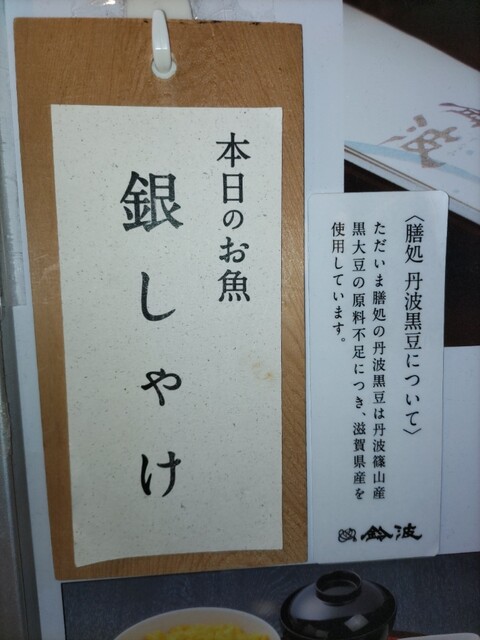 本日のお魚
銀しゃけ
〈膳処 丹波黒豆について〉
ただいま膳処の丹波黒豆は丹波篠山産
黒大豆の原料不足につき、滋賀県産を
使用しています。
鈴波
波